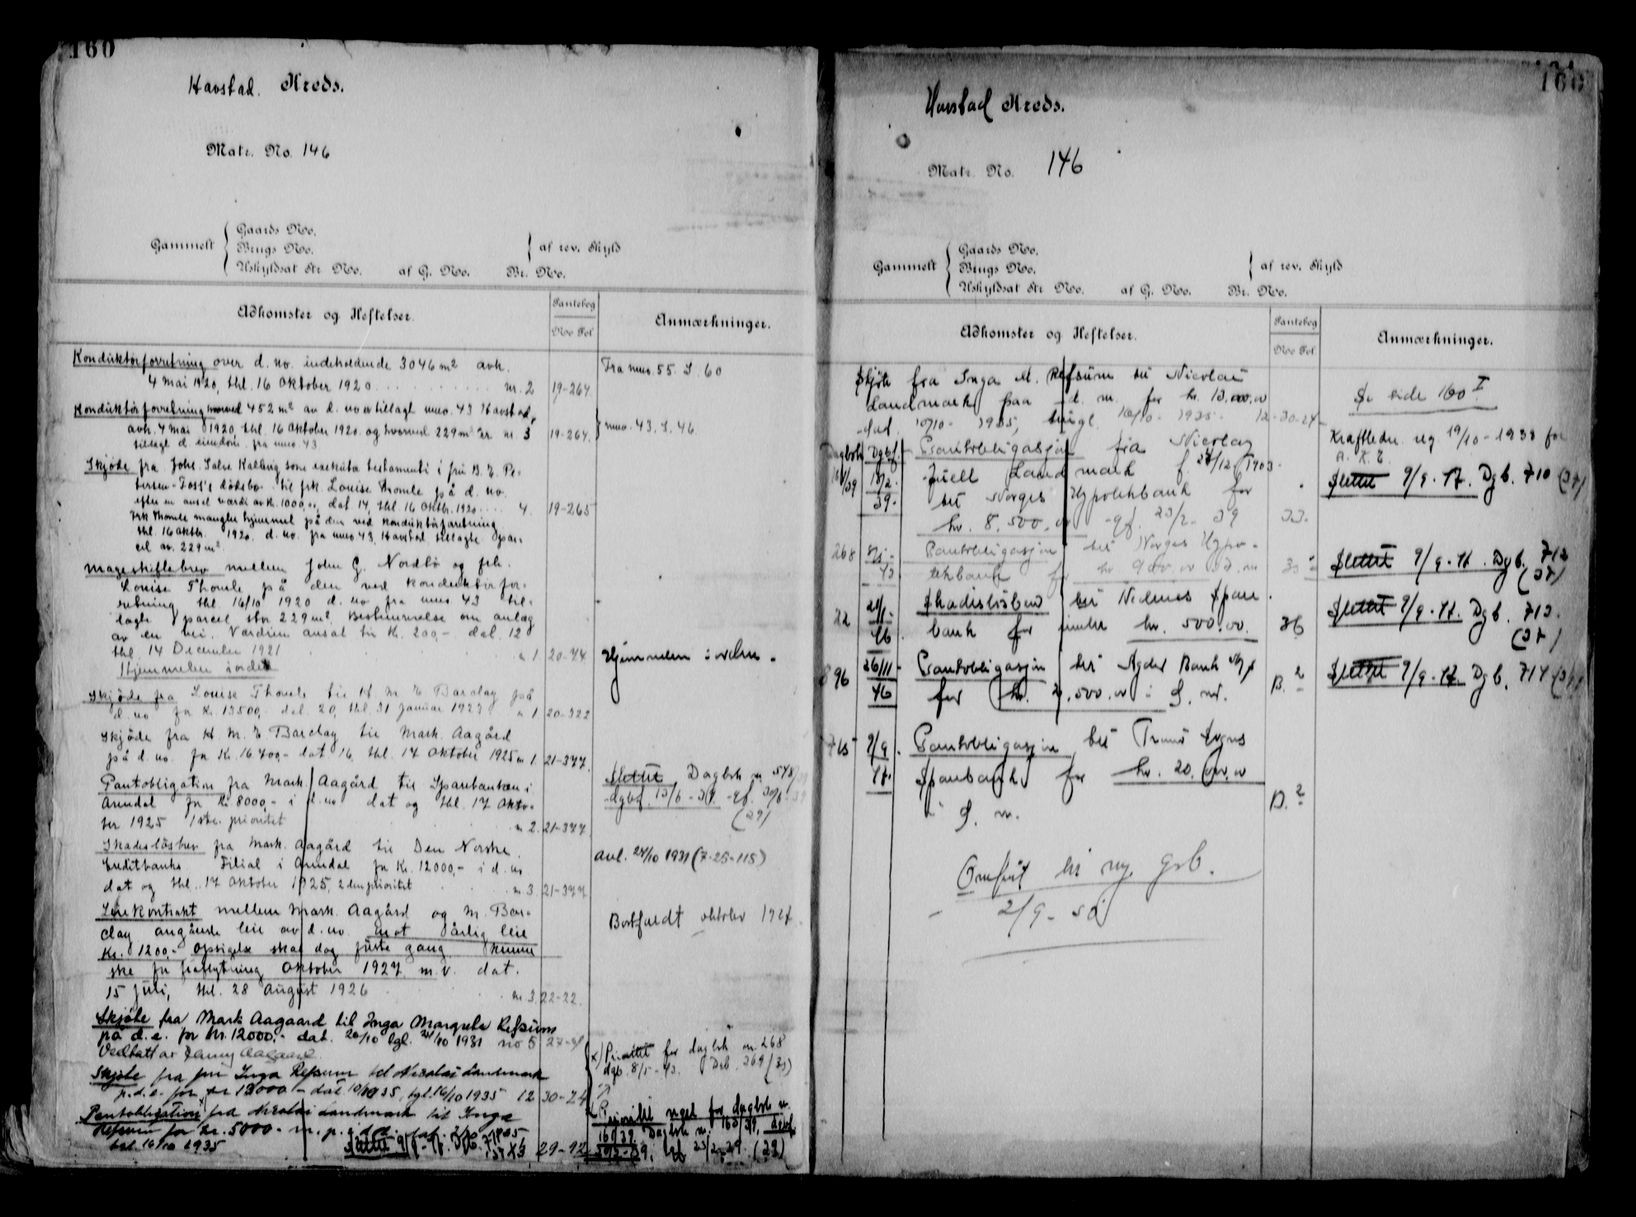 160
Havstad Kreds.
Matr. No. 146
Gammelt
Gaards No.
Brugs No.
Uskyldsat Str. No. af G. No. Br. No.
af rev. Skyld
Adkomster og Heftelser.
Pantebog
No Fol
Anmærkninger.
Konduktørforretning over d. no. indeholdende 3046 m² avh.
4 mai 1920, thl. 16 oktober 1920 nr. 2 19-264.
Fra mno. 55. S. 60
Konduktørforretning hvorved 452 m² av d. no er tillagt mno. 43 Havstad,
avh. 4 mai 1920, thl. 16 oktober 1920. og hvorved 229 m² er nr. 3 19-264.
tillagt d. eiendom. fra mno. 43
mno. 43. S. 46.
Skjøde fra Johs. Salve Kalberg som executor testamenti i fru B. E. Pe-
tersen-Foss's dødsbo til frk. Louise Thomle på d. no.
efter en ansat værdi av k. 1000,00, dat 14, thl. 16 oktbr. 1920 4. 19-265
Frk Thomle mangler hjemmel på den ved konduktørforretning
thl. 16 oktbr. 1920. d. no. fra mno 43, Havstad tillagte Par-
cel av. 229 m².
Mageskiftebrev mellem John G. Nordbø og frk.
Louise Thomle på den ved konduktørfor-
retning thl. 16/10 1920 d. no fra mno 43 til-
lagte parcel stor 229 m². Bestemmelse om anlæg
av en vei. Værdien ansat til K. 200,- dat. 12
thl. 14 December 1921 n 1 20-44
Hjemmelen i orden
Hjemmelen i orden.
Skjøde fra Louise Thomle til H. M. T. Barclay på
d. no for Kr. 13500,- dat. 20, thl. 31 januar 1923 n 1 20-322
Skjøde fra H. M. T. Barclay til Mark. Aagård
på d. no. for Kr. 16400,- dat 16, thl. 17 oktober 1925 n 1 21-377.
Pantobligation fra Mark. Aagård til Sparebanken i
Arendal for Kr. 8000,- i d. no dat og thl. 17 okto-
ber 1925 1ste. prioritet n 2. 21-377.
Slettet Dagbok nr. 548/39
dgbf. 13/6 - 39. - gf. 30/6 - 39
(39)
Skadesløsbrev fra Mark. Aagård til Den Norske
Creditbanks Filial i Arendal for Kr. 12000,- i d. no
dat og thl. 17 oktober 1925, 2den prioritet n 3 21-377
avl. 24/10 1931 (7-25-115)
Leiekontrakt mellem Mark. Aagård og M. Bar-
clay angående leie av d. no. mot årlig leie
Kr. 1200,- Opsigelse skal dog første gang kunne
ske for fraflytning oktober 1927. m. v. dat.
15 juli, thl. 28 august 1926 n 3. 22-22.
Bortfaldt oktober 1927.
Skjøte fra Mark Aagaard til Inga Margrete Refsum
på d. e. for kr. 12000,- dat. 20/10 tgl. 24/10 1931 no 5
Vedtatt av Jenny Aagaard.
Skjøte fra fru Inga Refsum til Nicolai Landmark
p. d. e. for kr 13000 - dat 10/10 1935, tgl. 16/10 1935 12 30-24
Pantobligation fra Nicolai Landmark til Inga
Refsum for kr. 5000.-
tgl 16/10 1935 29-92
x) Prioritet for dagbok nr 268
dgb. 8/5 - 43. Dgb. 269 (39)
Prioritet veget for dagbok nr.
161/39 Dagbok nr. 162/39, dgbf.
gf 23/2-39. (39)
160
Havstad Kreds.
Matr. No. 146
Gammelt
Gaards No.
Brugs No.
Uskyldsat Str. No. af G. No. Br. No.
af rev. Skyld
Adkomster og Heftelser.
Pantebog
No Fol
Anmærkninger.
Skjøte fra Inga M. Refsum til Nicolai
Landmark paa d. m. for kr. 13.000,00
dat. 10/10 - 1935, tingl. 16/10 - 1935 - 12 - 30-24
Se side 160 I
Kraftledn. reg 19/10 - 1938 for
A. K. E.
Dagbok Dgbf.
161/39
Pantobligasjon fra Nicolay
Juell Landmark f. 27/12 1903
til Norges Hypotekbank for
kr. 8.500,00 - gf. 23/2 - 39 33.
Slettet 9/9 - 47. Dgb. 710 (37)
268 8/5 - 43
Pantobligasjon til Norges Hypo-
tekbank for kr 900,00 i d. m
Slettet 9/9 - 47. Dgb. 712
(37)
22 21/1 - 46.
Skadesløsbrev til Nidenes Spare-
bank for inntil kr. 500,00. 36
Slettet 9/9 - 47. Dgb. 713.
(37)
896 26/11 - 46
Pantobligasjon til Agder Bank A/S
for kr. 7.500,00 i s. m. B. 2
Slettet 9/9 - 47. Dgb. 714 (37)
715 9/9. 47.
Pantobligasjon til Tromø Sogns
Sparebank for kr. 20.000,00
i s. m. B. 2
Omført til ny grb.
2/9 - 50